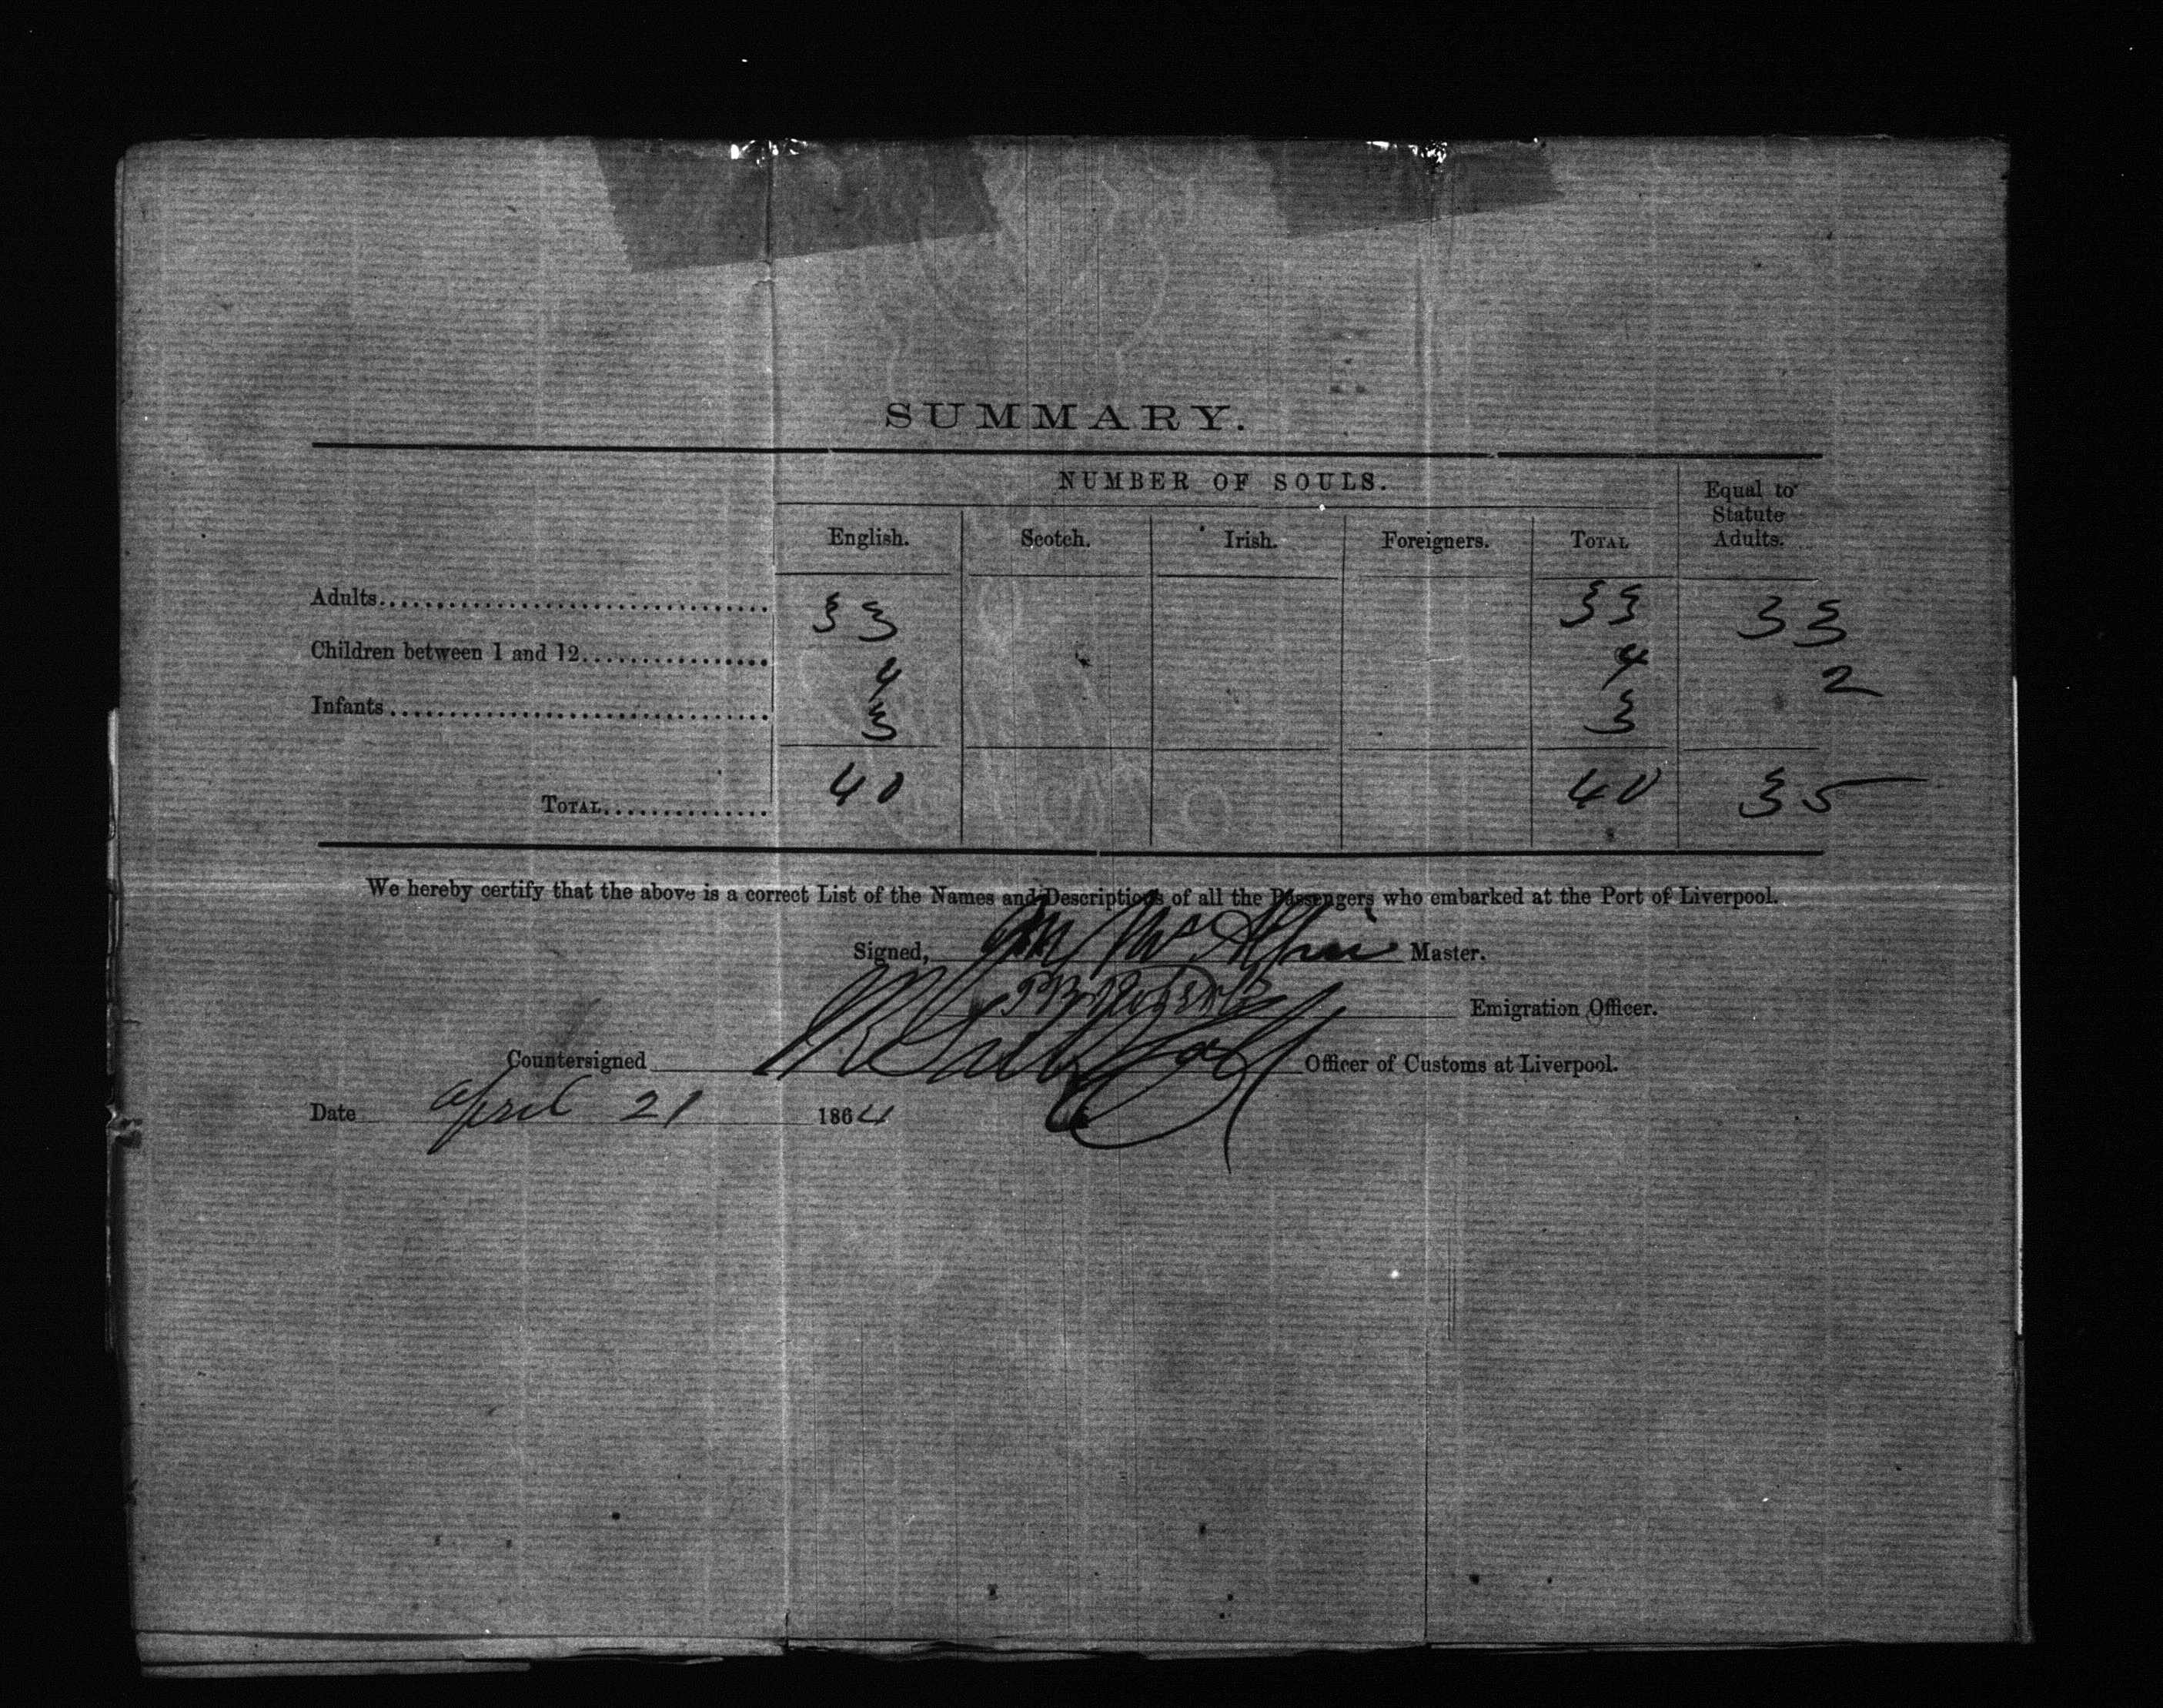 SUMMARY.
NUMBER OF SOULS.
Equal to Statute Adults.
English. Scotch. Irish. Foreigners. TOTAL
Adults 33 33 33
Children between 1 and 12 4 4 2
Infants 3 3
TOTAL 40 40 35
We hereby certify that the above is a correct List of the Names and Descriptions of all the Passengers who embarked at the Port of Liverpool.
Signed, Master.
Emigration Officer.
Countersigned Officer of Customs at Liverpool.
Date April 21 1864